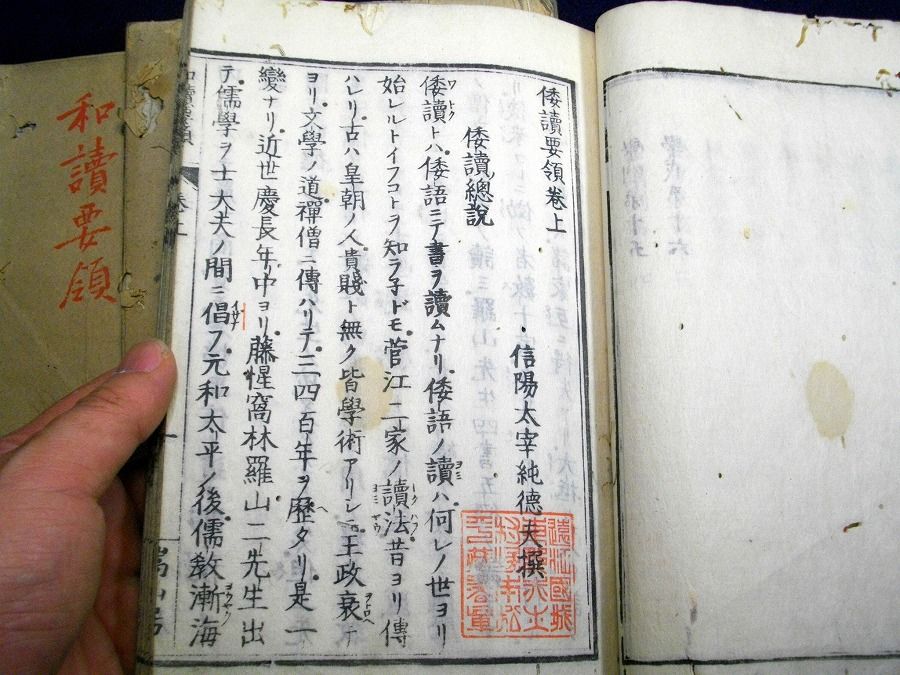 倭讀要領卷上
信陽太宰純德夫撰
倭讀總說
倭讀トハ倭語ニテ書ヲ讀ムナリ倭語ノ讀ハ何レノ世ヨリ
始レルトイフコトヲ知ラ子ドモ菅江二家ノ讀法昔ヨリ傳
ハレリ古ハ皇朝ノ人貴賤ト無ク皆學術アリシニ王政衰テ
ヨリ文學ノ道禪僧ニ傳ハリテ三四百年ヲ歷タリ是一
變ナリ近世慶長年中ヨリ藤惺窩林羅山二先生出
テ儒學ヲ士大夫ノ間ニ倡フ元和太平ノ後儒教漸海
和讀要領